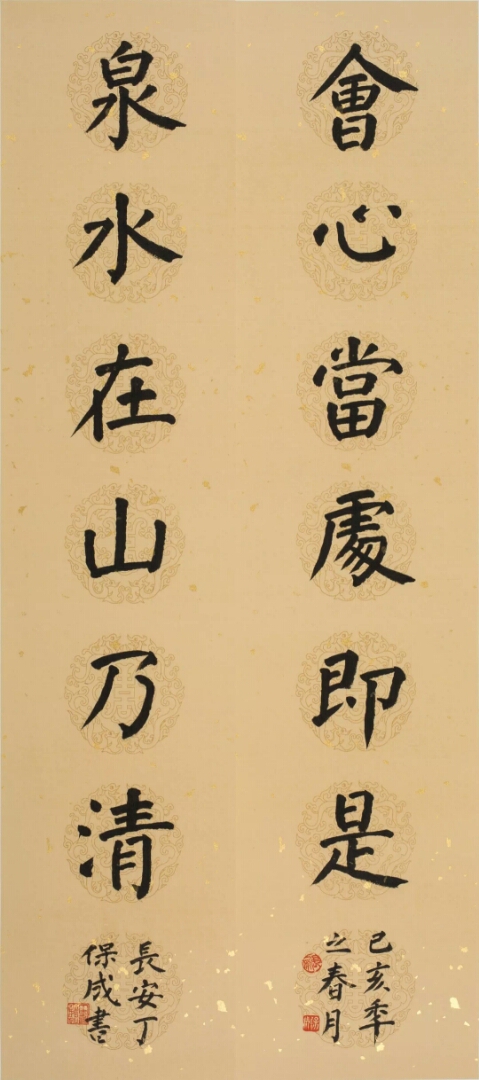 會心當處即是
己亥年
之春月
泉水在山乃清
長安丁
保成書